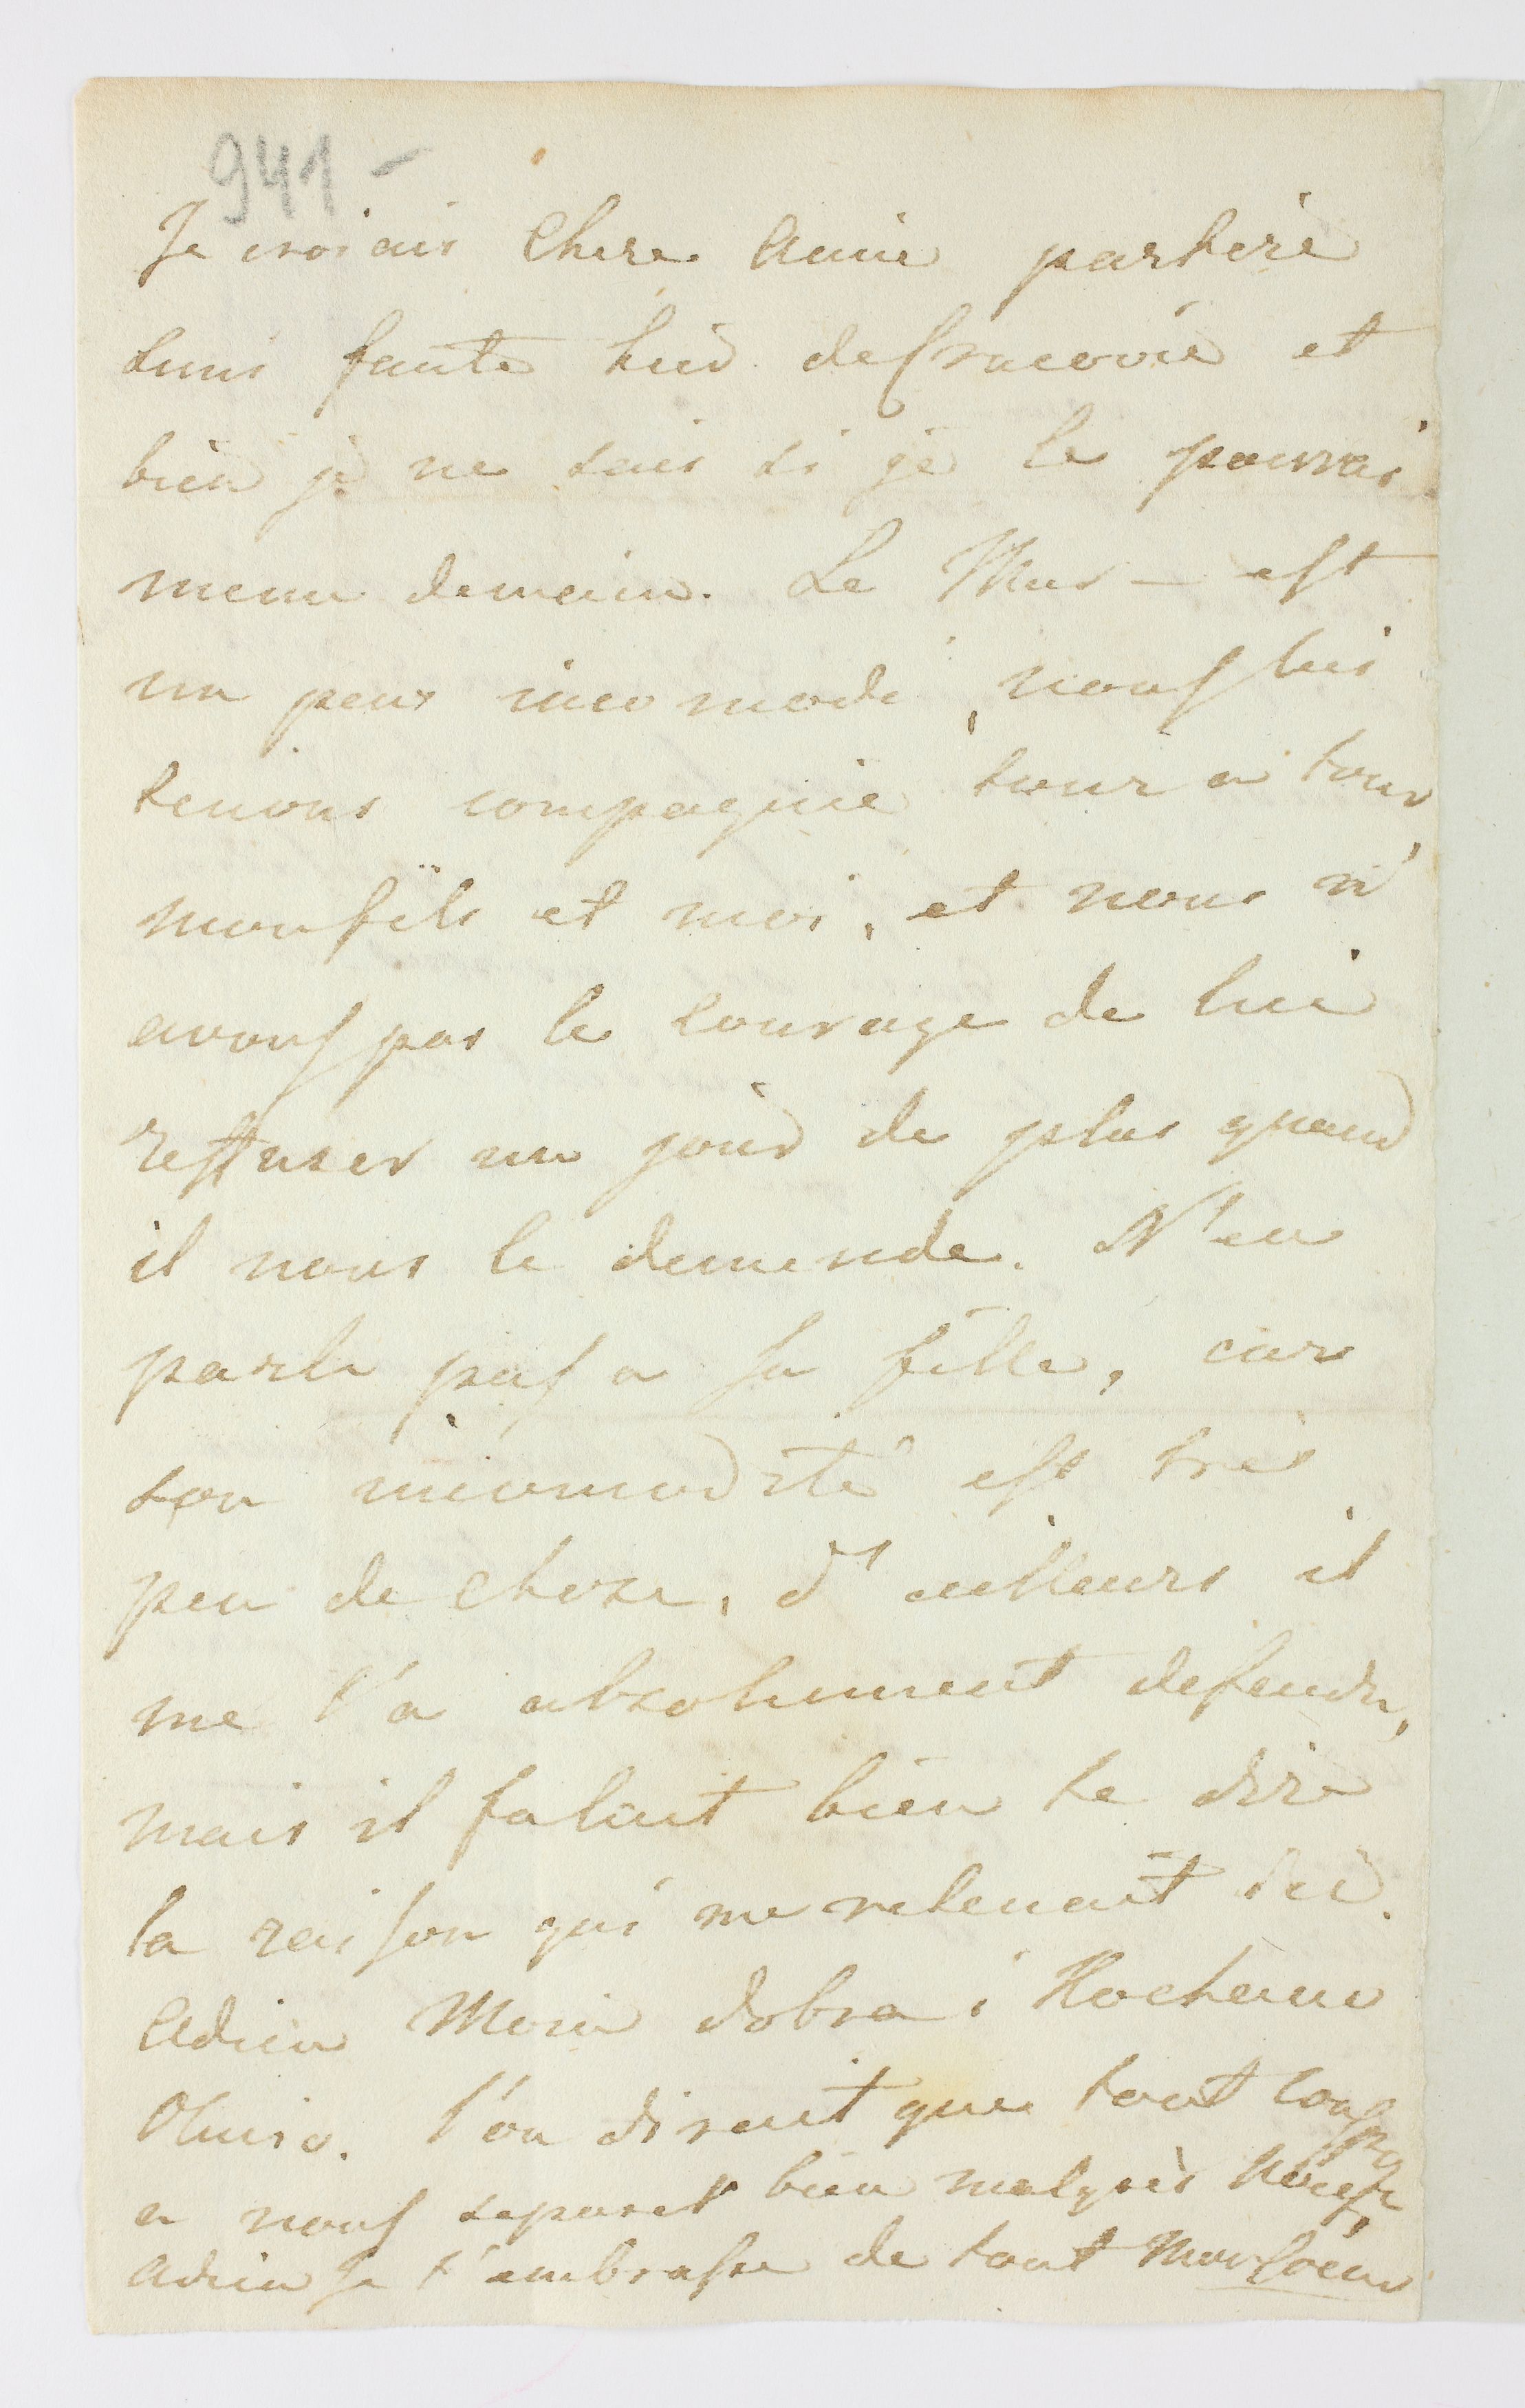 941 -
Je croiais Chere Amie partire
sans faute hier de Cracovie et
bien je ne sais si je le pourrai
meme demain. Le Mar — est
un peux incomodé, nous lui
tenions compagnie tour a tour,
mon fils et moi, et nous n'
avons pas le courage de lui
reffuser un jour de plus quand
il nous le demende. N'en
parle pas a sa fille, car
son incomodité est tres
peu de chose, d'ailleurs il
me l'a absolument defendu,
mais il falait bien te dire
la raison qui me retenait ici.
Adieu Moia dobra i Kochana
l'on dirait que tout
a nous separer bien malgrés
Adieu je t'embrasse de tout mon Coeur